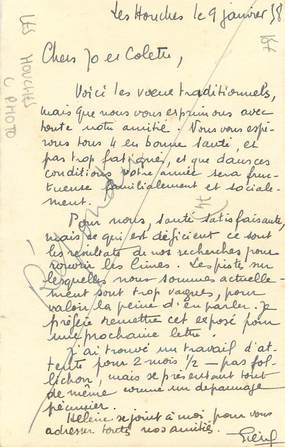 Les Houches le 9 janvier 58
Chers Jo et Colette,
Voici les vœux traditionnels,
mais que nous vous exprimons avec
toute notre amitié. Nous vous espé-
rons tous 4 en bonne santé, et
pas trop fatignés, et que dans ces
conditions votre année sera fruc-
tueuse familialement et sociale-
ment.
Pour nous, santé satisfaisante,
mais ce qui est déficient ce sont
les résultats de nos recherches pour
rouvrir les
Les pistes sur
lesquelles nous sommes actuelle-
ment sont trop vagues, pour
valoir la peine d'en parler. Je
préfère remettre cet exposé pour
une prochaine lettre.
J'ai trouvé un travail d'at-
tente pour 2 mois 1/2 — pas fol-
lichon, mais se présentant tout
de même comme un dépannage
pécunier.
Hélène se joint à moi pour vous
adresser toutes nos amitiés.
LES HOUCHES
C PHOTO
74